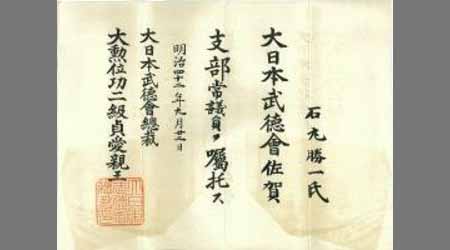 石丸勝一氏
大日本武徳會佐賀
支部常議員ヲ囑托ス
明治四十二年九月廿三日
大日本武徳會總裁
大勲位功二級貞愛親王